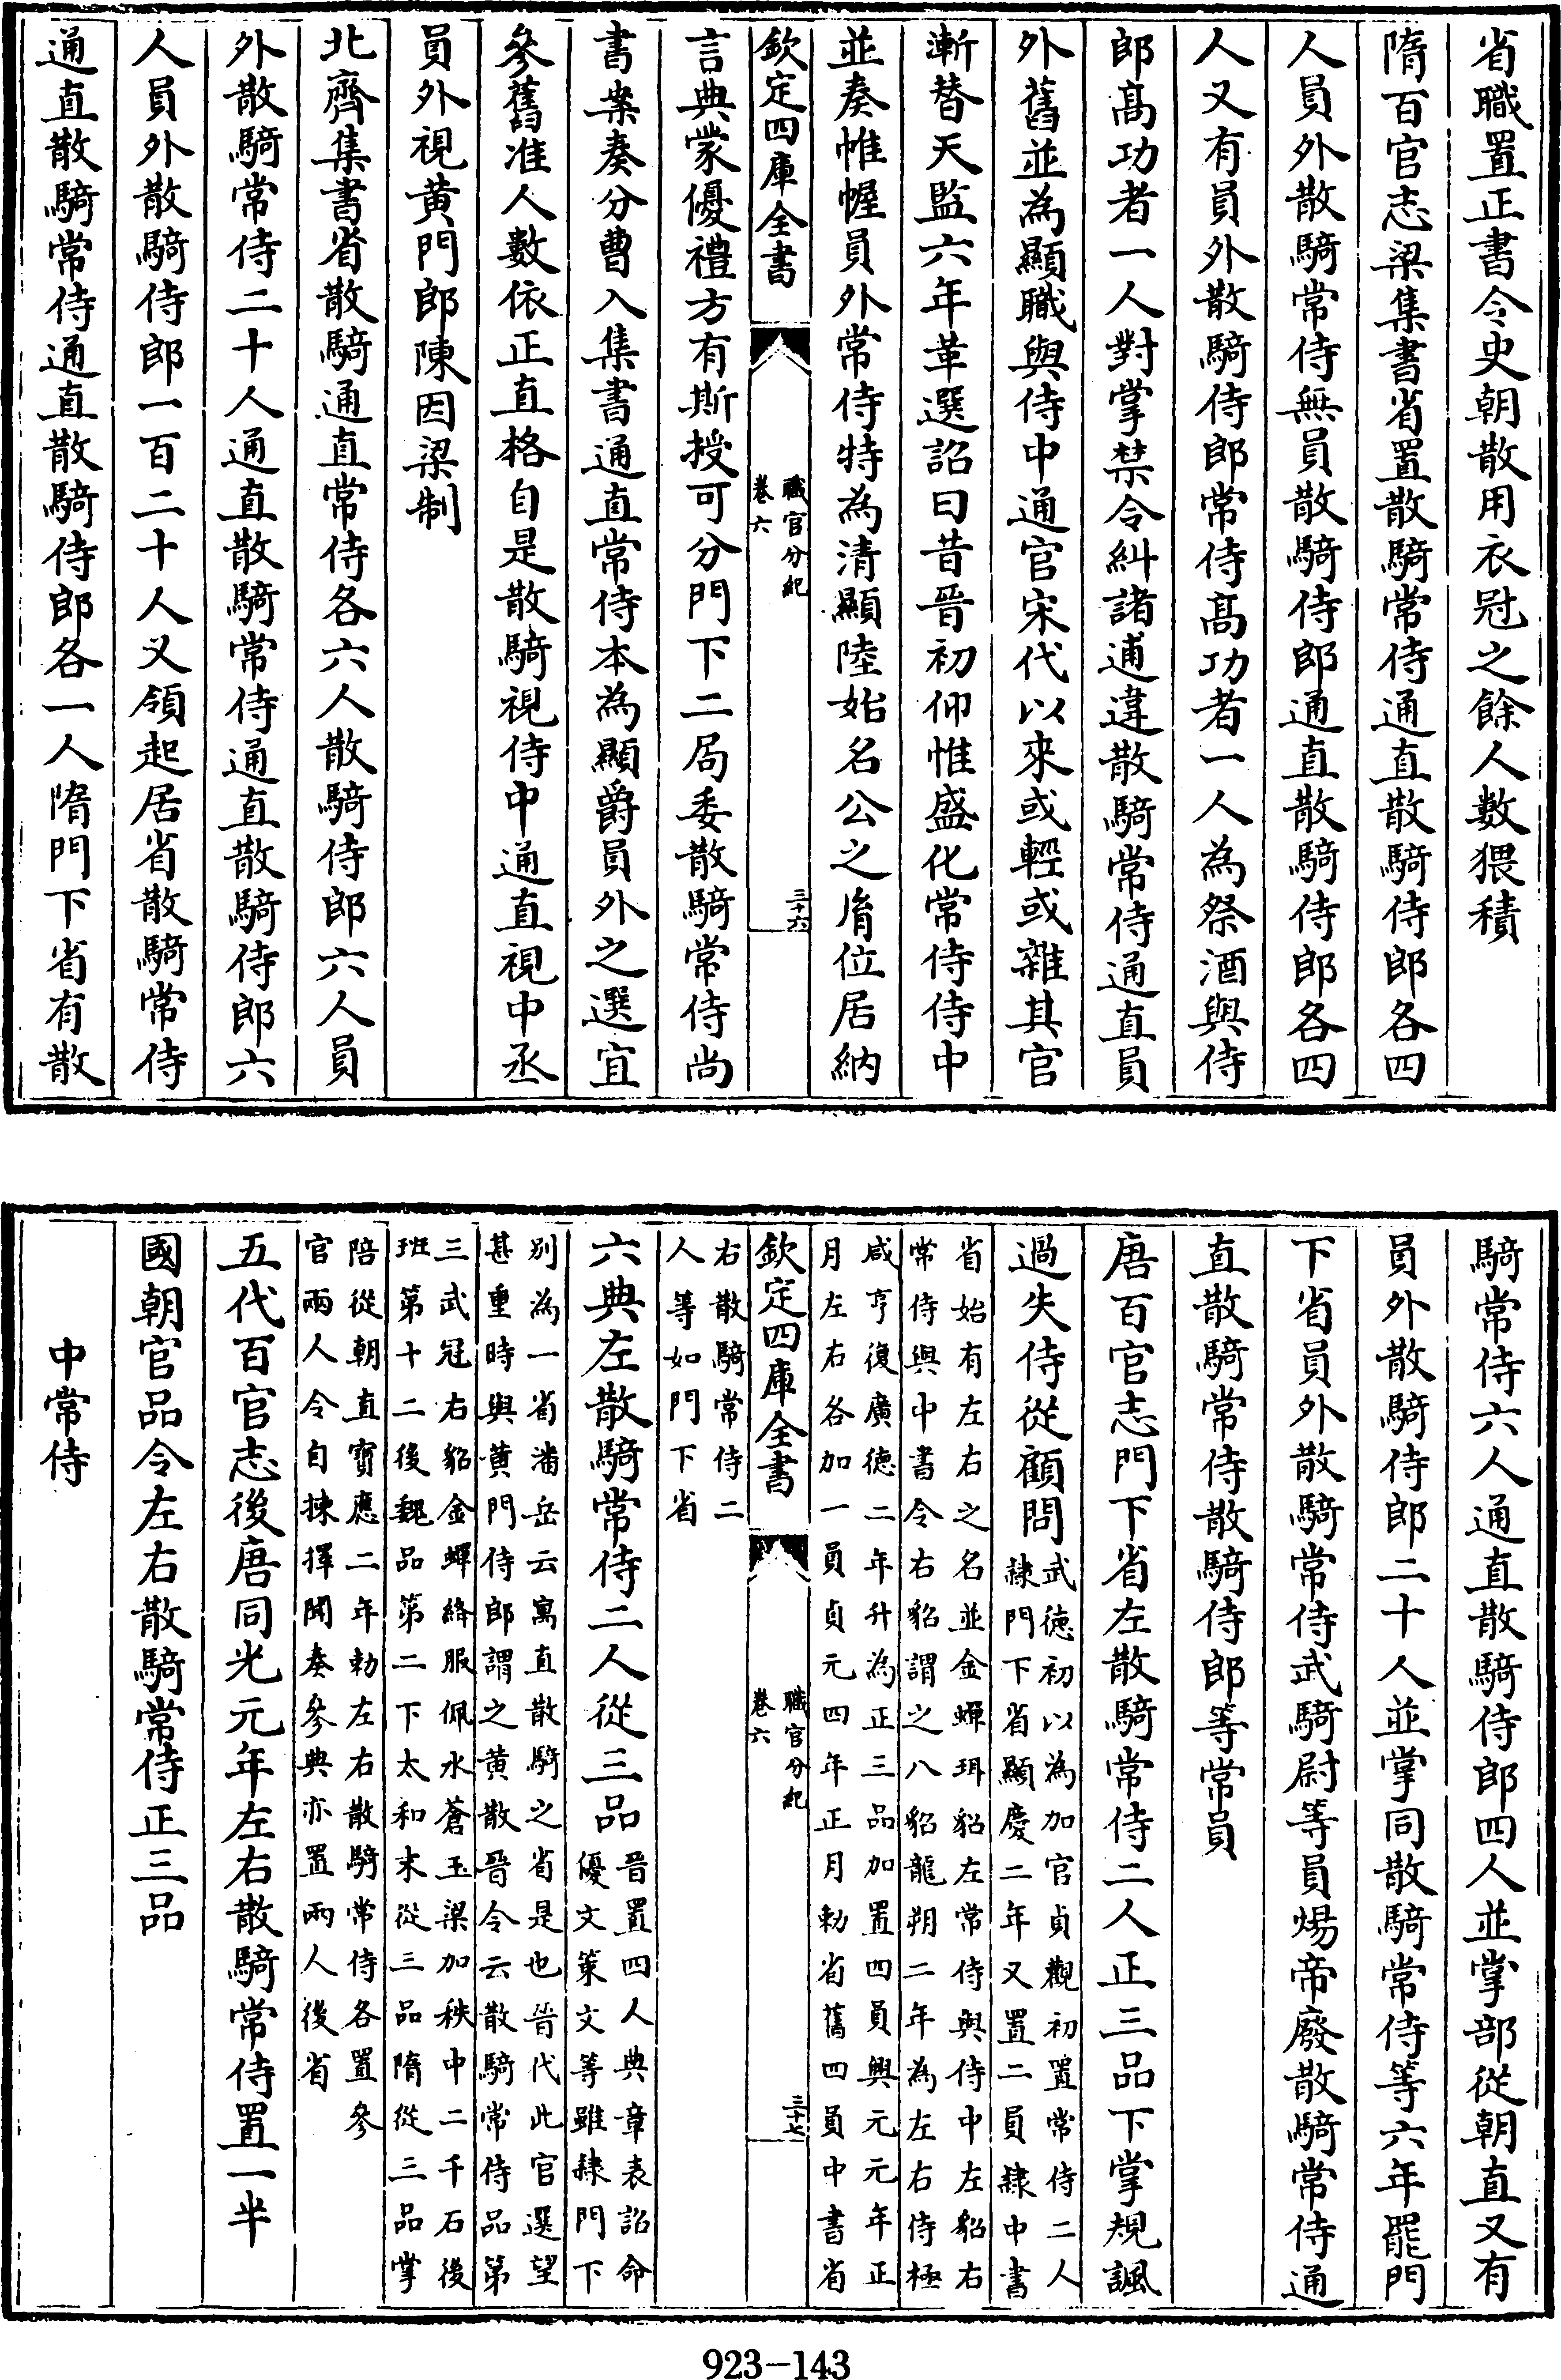 省職置正書令史朝散用衣冠之餘人數猥積
隋百官志梁集書省置散騎常侍通直散騎侍郎各四
人員外散騎常侍無員散騎侍郎通直散騎侍郎各四
人又有員外散騎侍郎常侍髙功者一人為祭酒與侍
郎髙功者一人對掌禁令糾諸逋違散騎常侍通直員
外舊並為顯職與侍中通官宋代以來或輕或雜其官
漸替天監六年革選詔曰昔晉初仰惟盛化常侍侍中
並奏帷幄員外常侍特為清顯陸始名公之胤位居納
欽定四庫全書
職官分紀
卷六
三十六
言典蒙優禮方有斯授可分門下二局委散騎常侍尚
書案奏分曹入集書通直常侍本為顯爵員外之選宜
參舊准人數依正直格自是散騎視侍中通直視中丞
員外視黄門郎陳因梁制
北齊集書省散騎通直常侍各六人散騎侍郎六人員
外散騎常侍二十人通直散騎常侍通直散騎侍郎六
人員外散騎侍郎一百二十人又領起居省散騎常侍
通直散騎常侍通直散騎侍郎各一人隋門下省有散
騎常侍六人通直散騎侍郎四人並掌部從朝直又有
員外散騎侍郎二十人並掌同散騎常侍等六年罷門
下省員外散騎常侍武騎尉等員煬帝廢散騎常侍通
直散騎常侍散騎侍郎等常員
唐百官志門下省左散騎常侍二人正三品下掌規諷
過失侍從顧問武德初以為加官貞觀初置常侍二人
隸門下省顯慶二年又置二員隸中書
省始有左右之名並金蟬珥貂左常侍與侍中左貂右
常侍與中書令右貂謂之八貂龍朔二年為左右侍極
咸亨復廣德二年升為正三品加置四員興元元年正
月左右各加一員貞元四年正月勅省舊四員中書省
欽定四庫全書
職官分紀
卷六
三十七
右散騎常侍二
人等如門下省
六典左散騎常侍二人從三品晉置四人典章表詔命
優文策文等雖隸門下
别為一省潘岳云寓直散騎之省是也晉代此官選望
甚重時與黄門侍郎謂之黄散晉令云散騎常侍品第
三武冠右貂金蟬絳服佩水蒼玉梁加秩中二千石後
班第十二後魏品第二下太和末從三品隋從三品掌
陪從朝直寶應二年勅左右散騎常侍各置參
官兩人令自揀擇聞奏參典亦置兩人後省
五代百官志後唐同光元年左右散騎常侍置一半
國朝官品令左右散騎常侍正三品
中常侍
923-143